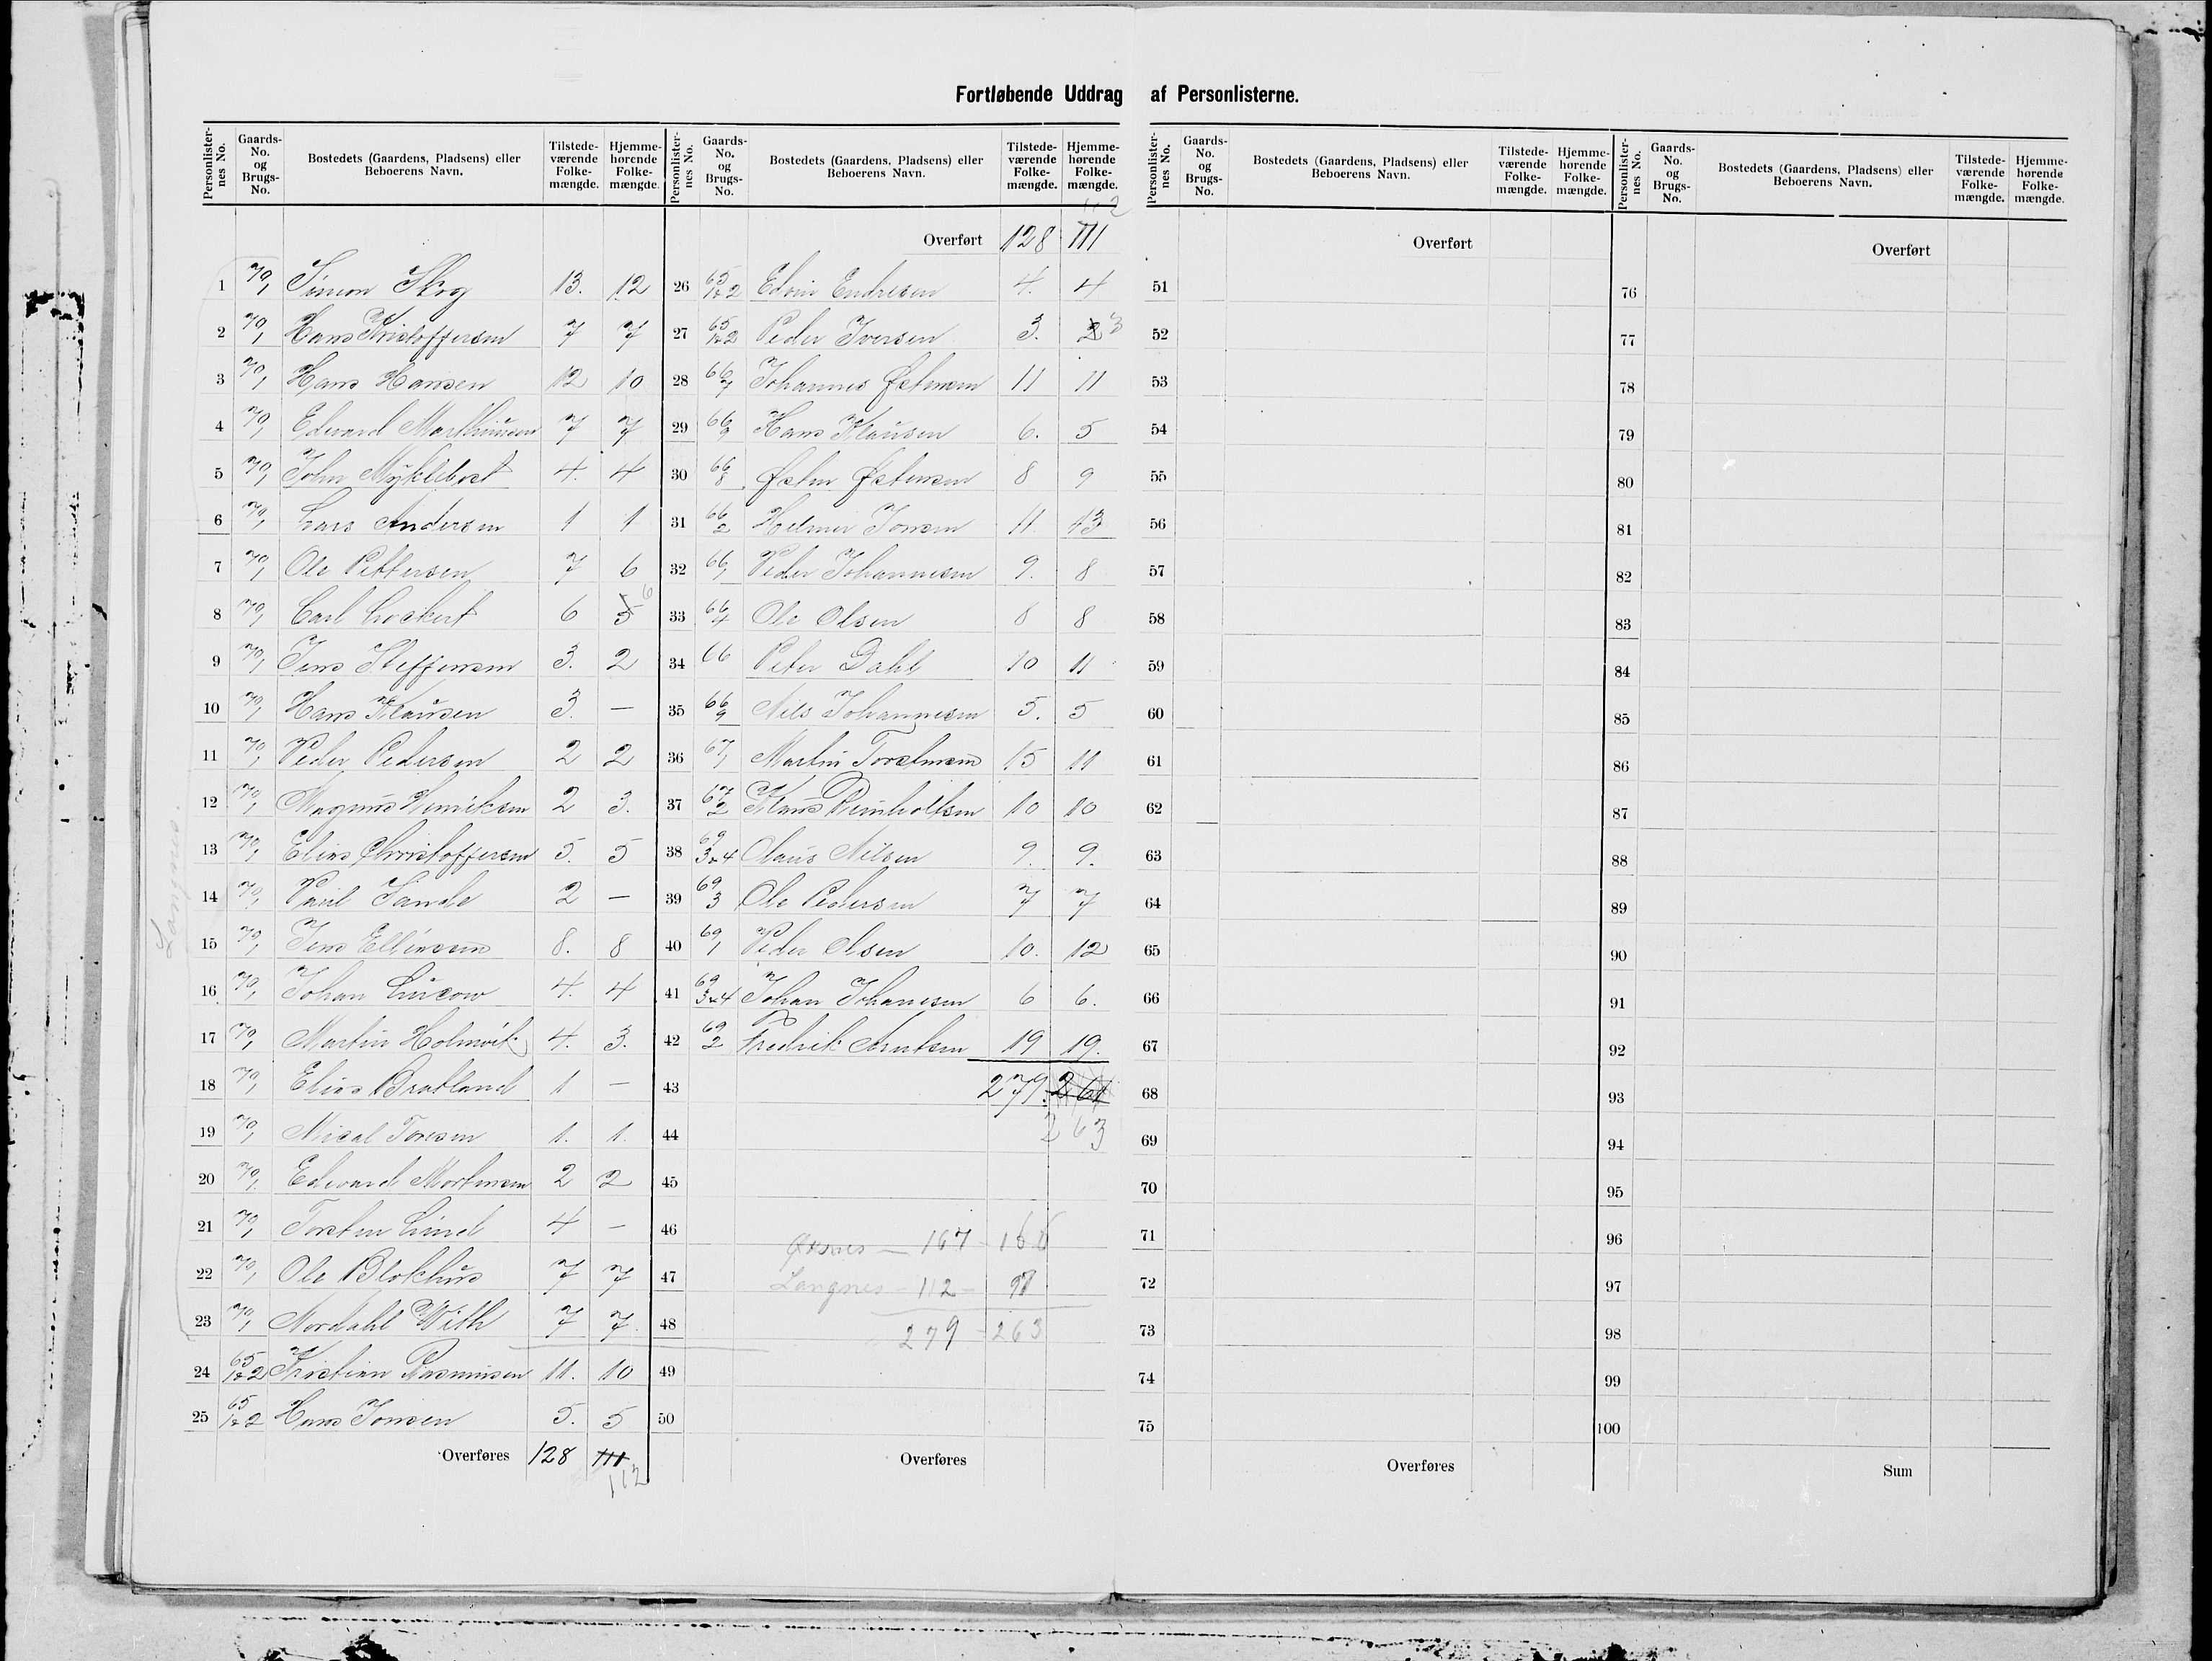 Fortløbende Uddrag af Personlisterne.
Personlisternes No. Gaards-No. og Brugs-No. Bostedets (Gaardens, Pladsens) eller Beboerens Navn. Tilstedeværende Folkemængde. Hjemmehørende Folkemængde.
1 70/1 Simon Skog 13. 12
2 70/1 Hans Kristoffersen 7 7
3 70/1 Hans Hansen 12 10
4 70/1 Edvard Marthinusen 7 7
5 70/1 John Myklebost 4. 4
6 70/1 Lars Andersen 1 1
7 70/1 Ole Pettersen 7 6
8 70/1 Carl Lockert 6 5 6
9 70/1 Jens Steffensen 3. 2
10 70/1 Hans Klausen 3. —
11 70/1 Peder Pedersen 2 2
12 70/1 Magnus Henriksen 2 3.
13 70/1 Elias Christoffersen 5. 5
14 70/1 Paul Sande 2 —
15 70/1 Jens Ellingsen 8. 8
16 70/1 Johan Lucow 4. 4
17 70/1 Martin Holmvik 4. 3.
18 70/1 Elias Bratland 1 —
19 70/1 Mical Toresen 1. 1.
20 70/1 Edvard Mortensen 2 2
21 70/1 Torsten Lind 4 —
22 70/1 Ole Blokhus 7 7
23 70/1 Nordahl With 7 7
24 65/1&2 Kristian Rasmusen 11. 10
25 65/1&2 Hans Jonsen 5. 5
Overføres 128 111
112
Langnes.
Personlisternes No. Gaards-No. og Brugs-No. Bostedets (Gaardens, Pladsens) eller Beboerens Navn. Tilstedeværende Folkemængde. Hjemmehørende Folkemængde.
112
Overført 128 111
26 65/1&2 Edvin Endresen 4. 4
27 65/1&2 Peder Iversen 3. 2 3
28 66/7 Johannes Østensen 11 11
29 66/3 Hans Klausen 6. 5
30 66/8 Østen Østensen 8 9
31 66/2 Helmer Jonsen 11 13
32 66/1 Peder Johannesen 9. 8
33 66/4 Ole Olsen 8 8
34 66 Peter Dahl 10 11
35 66/9 Nils Johannesen 5. 5
36 67/1 Martin Torstensen 15 11
37 67/2 Klaus Reinholtsen 10 10
38 69/3&4 Claus Nilsen 9. 9.
39 69/3 Ole Pedersen 7 7
40 69/1 Peder Olsen 10. 12
41 69/3&4 Johan Johanesen 6 6.
42 69/2 Fredrik Arntsen 19 19.
43 279. 261
44 263
45
46 Øxsnes — 167 – 166
47 Langnes – 112 – 97
48 279 – 263
49
50
Overføres
Personlisternes No. Gaards-No. og Brugs-No. Bostedets (Gaardens, Pladsens) eller Beboerens Navn. Tilstedeværende Folkemængde. Hjemmehørende Folkemængde.
Overført
51
52
53
54
55
56
57
58
59
60
61
62
63
64
65
66
67
68
69
70
71
72
73
74
75
Overføres
Personlisternes No. Gaards-No. og Brugs-No. Bostedets (Gaardens, Pladsens) eller Beboerens Navn. Tilstedeværende Folkemængde. Hjemmehørende Folkemængde.
Overført
76
77
78
79
80
81
82
83
84
85
86
87
88
89
90
91
92
93
94
95
96
97
98
99
100
Sum